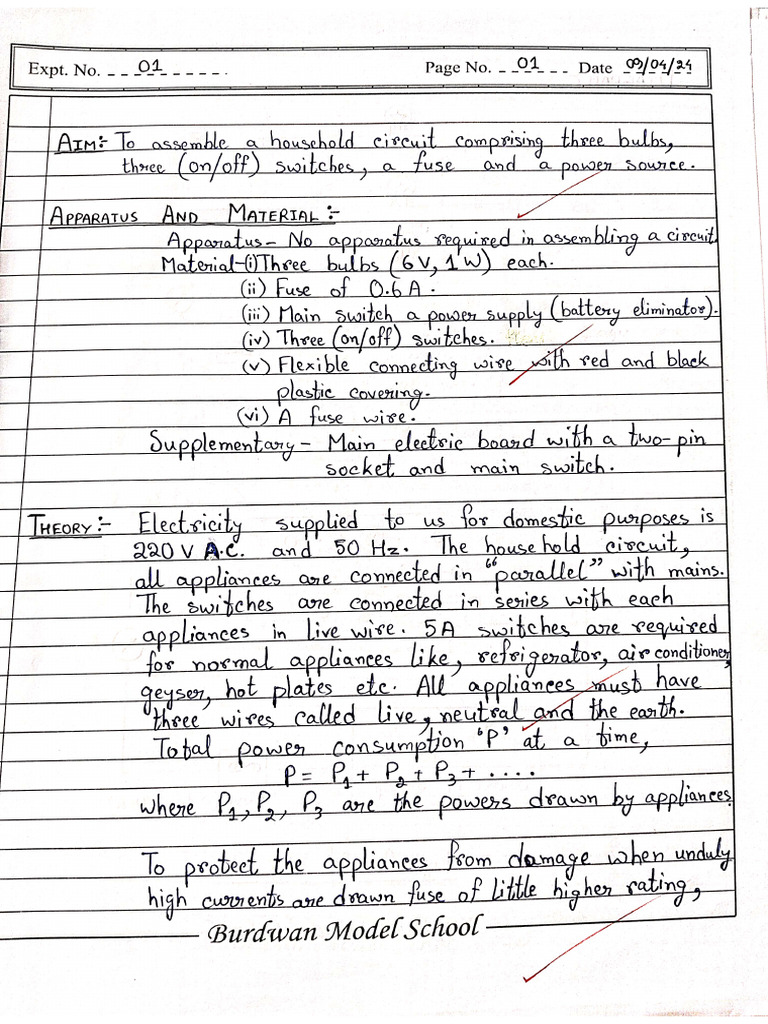 Expt. No. 01 Page No. 01 Date 09/04/24
AIM:- To assemble a household circuit comprising three bulbs,
three (on/off) switches, a fuse and a power source.
APPARATUS AND MATERIAL:-
Apparatus- No apparatus required in assembling a circuit
Material-(i) Three bulbs (6V, 1W) each.
(ii) Fuse of 0.6A.
(iii) Main switch a power supply (battery eliminator).
(iv) Three (on/off) switches.
(v) Flexible connecting wire with red and black
plastic covering.
(vi) A fuse wire.
Supplementary- Main electric board with a two-pin
socket and main switch.
THEORY:- Electricity supplied to us for domestic purposes is
220 V A.C. and 50 Hz. The household circuit,
all appliances are connected in "parallel" with mains.
The switches are connected in series with each
appliances in live wire. 5A switches are required
for normal appliances like, refrigerator, air conditioner,
geyser, hot plates etc. All appliances must have
three wires called live, neutral and the earth.
Total power consumption 'P' at a time,
P = P₁ + P₂ + P₃ + ....
where P₁, P₂, P₃ are the powers drawn by appliances.
To protect the appliances from damage when unduly
high currents are drawn fuse of little higher rating,
Burdwan Model School